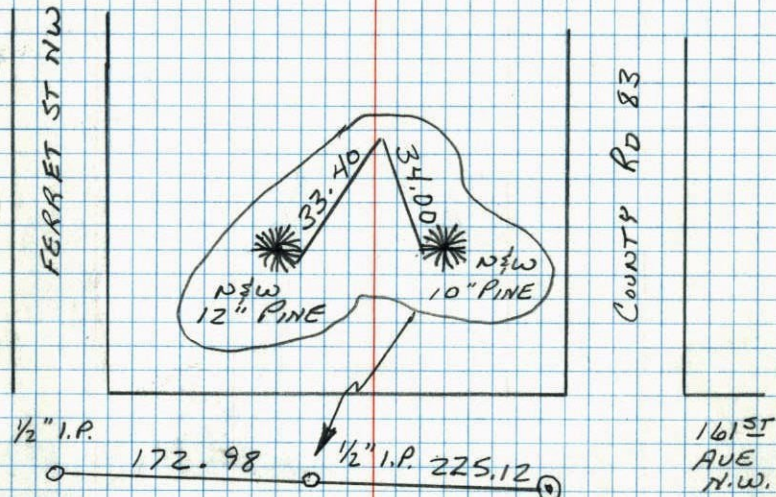 FERRET ST NW
COUNTY RD 83
33.40
34.00
N&W
12" PINE
N&W
10" PINE
1/2" I.P.
172.98
1/2" I.P.
225.12
161ST
AVE
N.W.